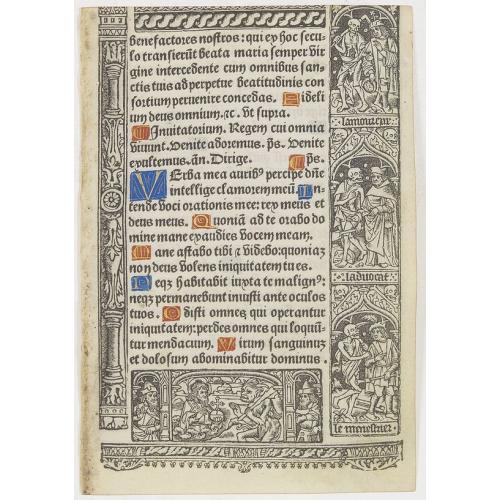 benefactores nostros: qui ex hoc secu
lo transierūt beata maria semper vir
gine intercedente cum omnibus san-
ctis tuis ad perpetue beatitudinis con
sortium peruenire concedas. Fideli
um deus omnium.⁊c. vt supra.
Inuitatorium. Regem cui omnia
viuunt. Venite adoremus. p̄s. Venite
exultemus. ān. Dirige. p̄s.
VErba mea auribꝰ percipe dñe
intellige clamorem meū. In-
tende voci orationis mee: rex meus et
deus meus. Quoniā ad te orabo do
mine mane exaudies vocem meam.
Mane astabo tibi ⁊ videbo: quoniaꝫ
non deus volens iniquitatem tu es.
Neqꝫ habitabit iuxta te malignꝰ:
neqꝫ permanebunt iniusti ante oculos
tuos. Odisti omnes qui operantur
iniquitatem: perdes omnes qui loquū-
tur mendacium. Virum sanguinuꝫ
et dolosum abominabitur dominus.
lamoureux
laduocat
le menestrier